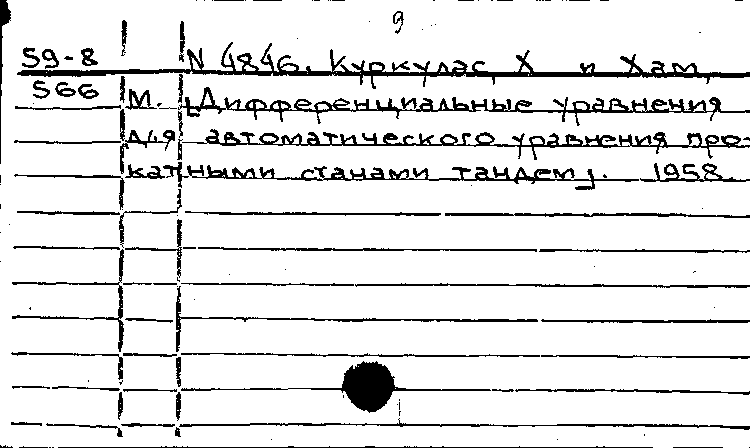 9
59-8 N 4846. Куркулас, Х и Хам,
566 М. [Дифференциальные уравнения
для автоматического уравнения про-
катными станами тандем]. 1958.